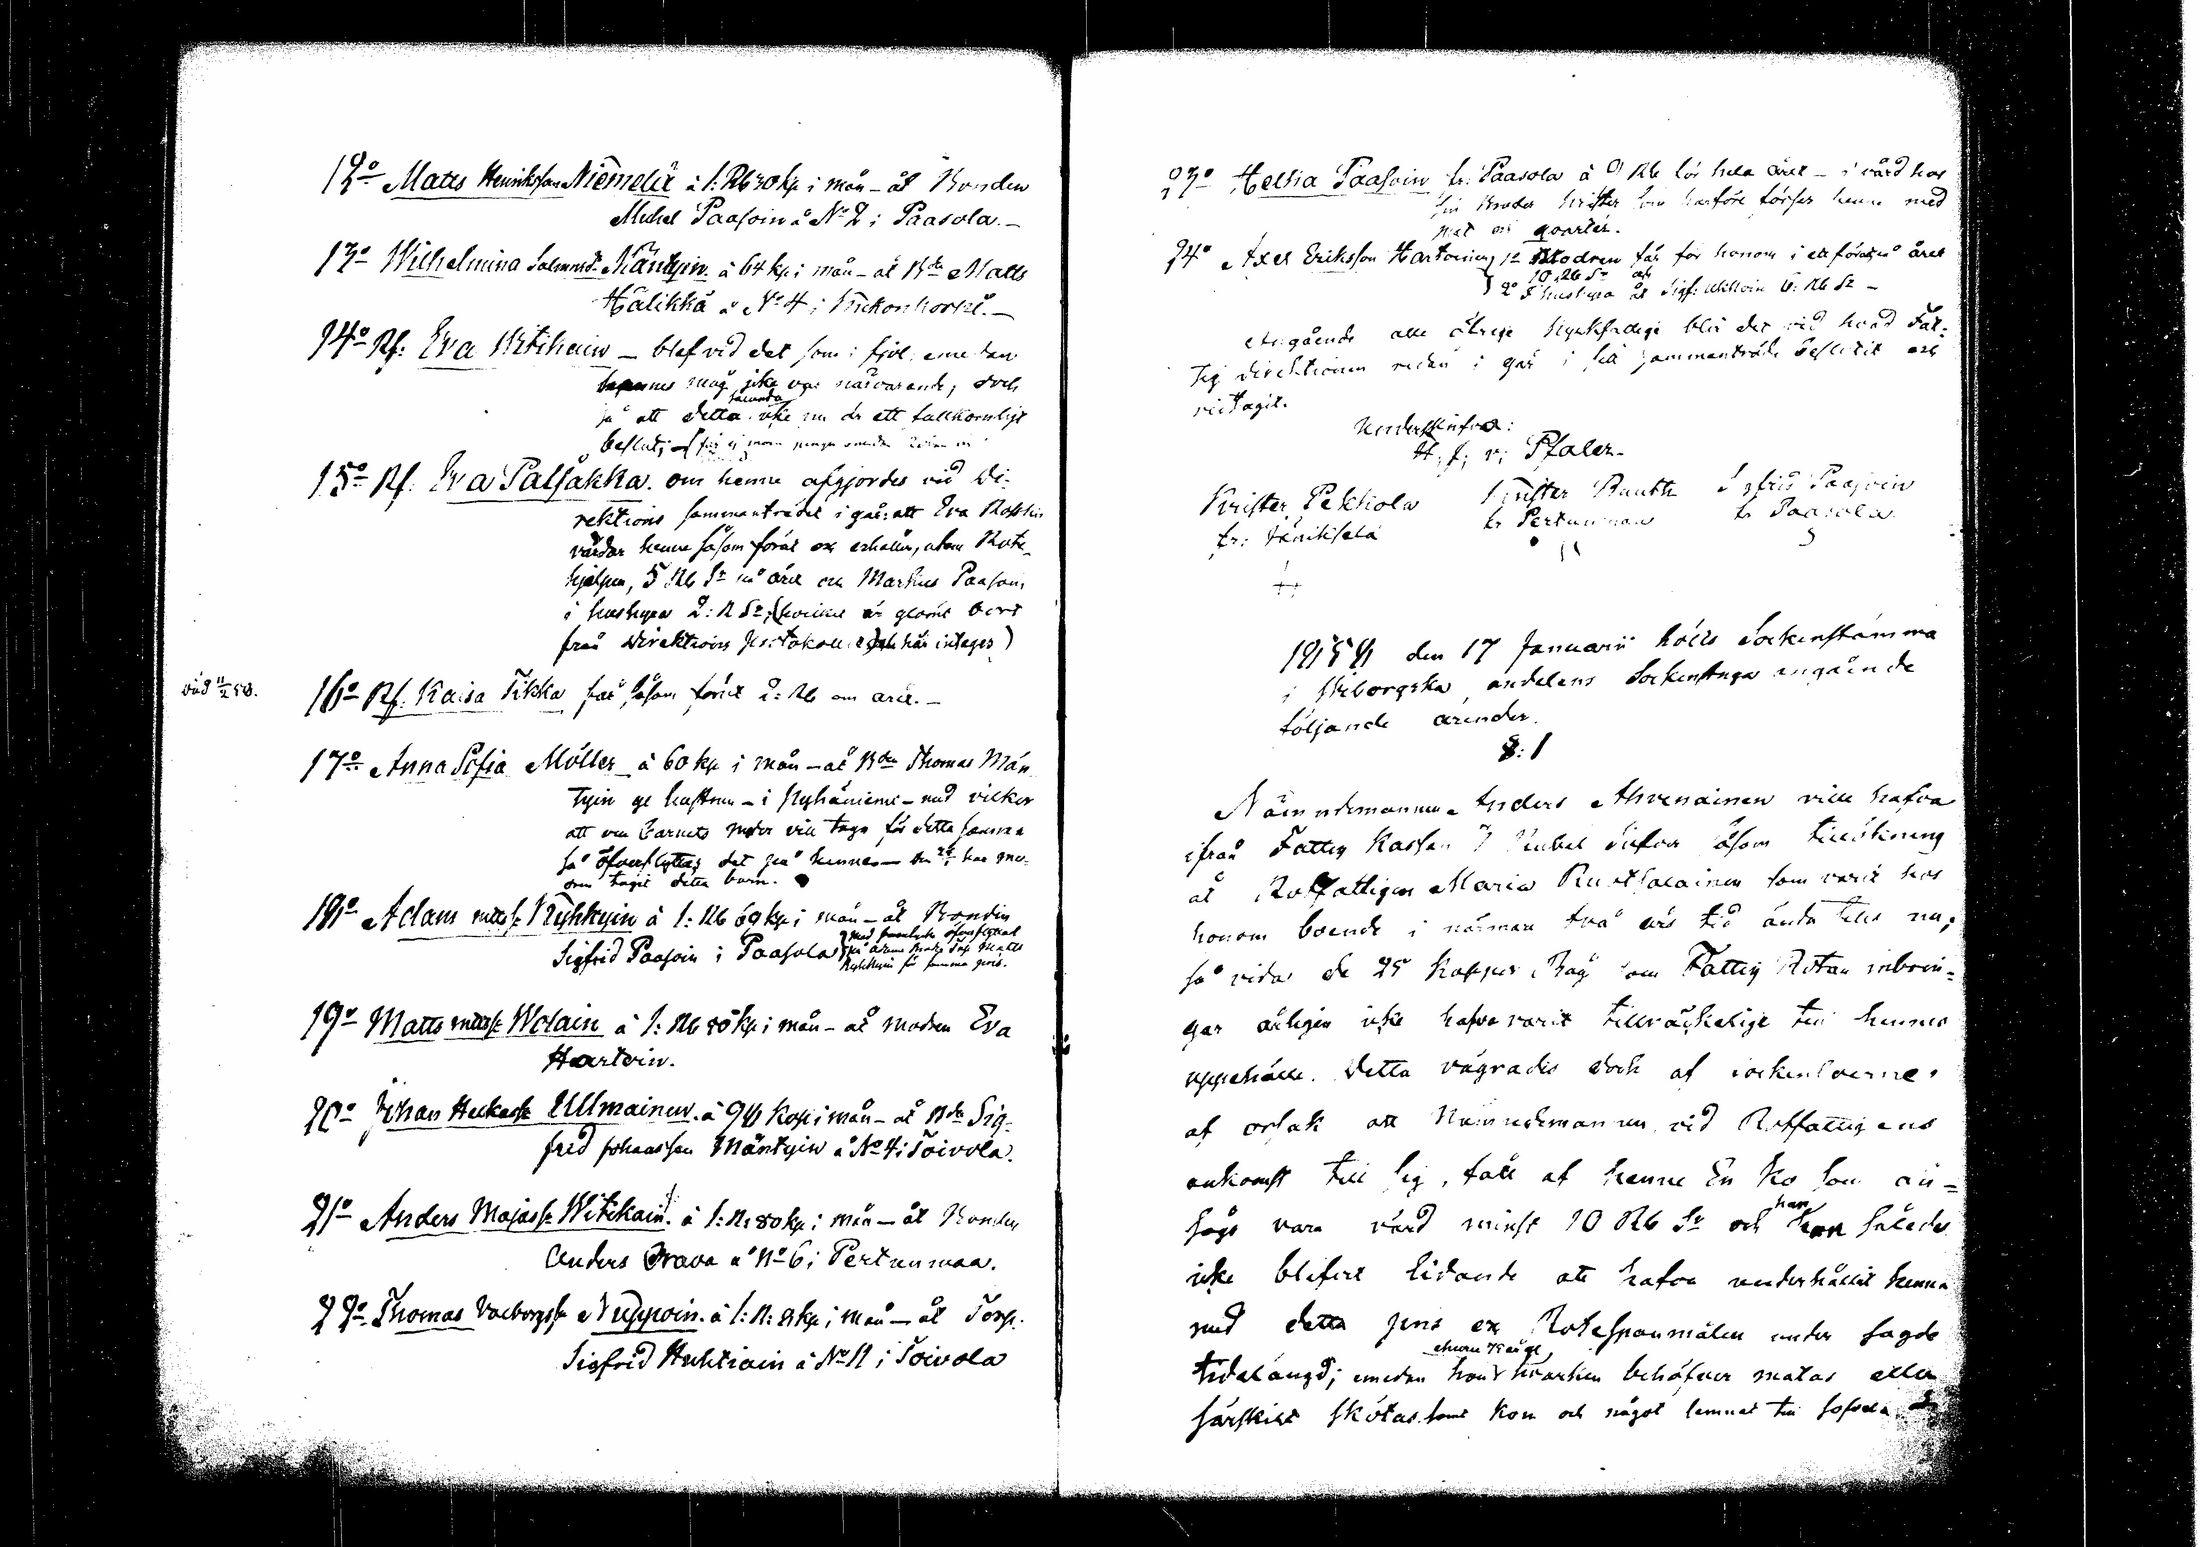 12o Matts Henriksson Niemelä à 1: Rb 30 kp i mån - åt Bonden
Michel Paasoin å No 2 i Paasola. -
13o Wilhelmina Salomonsdr Mäntyin à 64 kp i mån - åt Bden Matts
Hälikkä å No 4 i Kuhonkorpi. -
14o Rf: Eva Witikain - blef vid det som i fjol, emedan
hennes måg icke var närvarande, och
så att detta således icke nu är ett fullkomligt
beslut; -
15o Rf. Eva Patsakka. om henne afgjordes vid Di-
rektions sammanträdet i går: att Eva
vårdar henne såsom förut och erhåller, utom Rote-
hjelpen, 5 Rb Sr på året och Markus Paasoin
i hushyra 2: R Sr; (hvilket är glömt bort
från Direktions Protokollet och här intages)
våd 11/2 58.
16o Rf. Kaisa Tikka får såsom förut 2: Rb om året. -
17o Anna Sofia Möller à 60 kp i mån - åt Bden Thomas Män
tyin i Nyhäniemi - med vilkor
att om Barnets moder vill taga för detta samma
så öfverflyttas det på hennes - har mo-
dren tagit detta barn.
18o Adam Mattss. Kyhkyin à 1: Rb 69 kp i mån - åt Bonden
Sigfrid Paasoin i Paasola
Matts
Kyhkyin för samma pris.
19o Matts Mattss. Wolain à 1: Rb 80 kp i mån - åt modren Eva
Hartoin.
20o Johan Ullmainen. à 94 Kop i mån - åt Bden Sig-
frid Johansson Mäntyin å No 4 i Toivola.
21o Anders Majass. Witikain. à 1: R: 80 kp i mån - åt Bonden
Anders Orava å No 6 i Pertunmaa.
22o Thomas Valborgss. Nuppoin. à 1: R: 8 kp i mån - åt Torp.
Sigfrid Huhtiain å No 11 i Toivola
23o Helena Paasoin fr: Paasola à 9 Rb för hela året - i vård hos
sin Broder Krister som härföre förser henne med
mat och qvarter.
24o Axel Eriksson Hartoin 1o Modren får för honom i ett för allt på året
10 Rb Sr och
2o I hushyra åt Sigf: 6: Rb Sr -
Angående alla öfrige blir det vid hvad Fat-
tig Direktionen redan i går i sitt sammanträde beslutit och
vidtagit.
Underskrifva:
H. f. v. Pfaler.
Krister Pekkola Krister Ruuth Sigfrid Paasoin
fr: fr Pertunmaa fr Paasola
1858 den 17 Januarii hölls Sockenstämma
i Wiborgska andelens Sockenstuga angående
följande ärender.
§: 1
Nämndemannen Anders Ahvenainen ville hafva
ifrån Fattig Kassan 7 Rubel Silfver såsom tillökning
åt Rotfattigen Maria Ruotsalainen som varit hos
honom boende i närmare två års tid ända tills nu;
så vida de 25 Kappar Råg som Fattig Rotan inbrin-
gar årligen icke hafva varit tillräckelige till hennes
uppehälle. Detta vägrades dock af sockenboerne,
af orsak att Nämndemannen vid Rotfattigens
ankomst till sig, fått af henne En ko som an-
sågs vara värd minst 10 Rb Sr och han således
icke blifvit lidande att hafva underhållit henne
med detta pris och Rotespannmålen under sagde
tidslängd; emedan hon hvarken behöfver matas eller
särskilt skötas samt Kon och något lemnat till